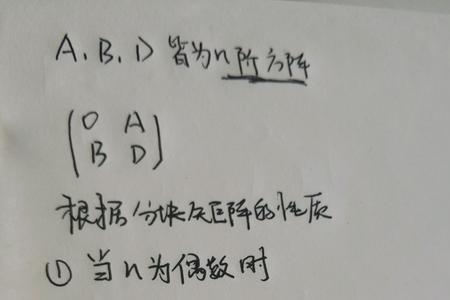 A、B、D 皆为n阶方阵
(0 A
B D)
根据分块矩阵的性质
① 当n为偶数时